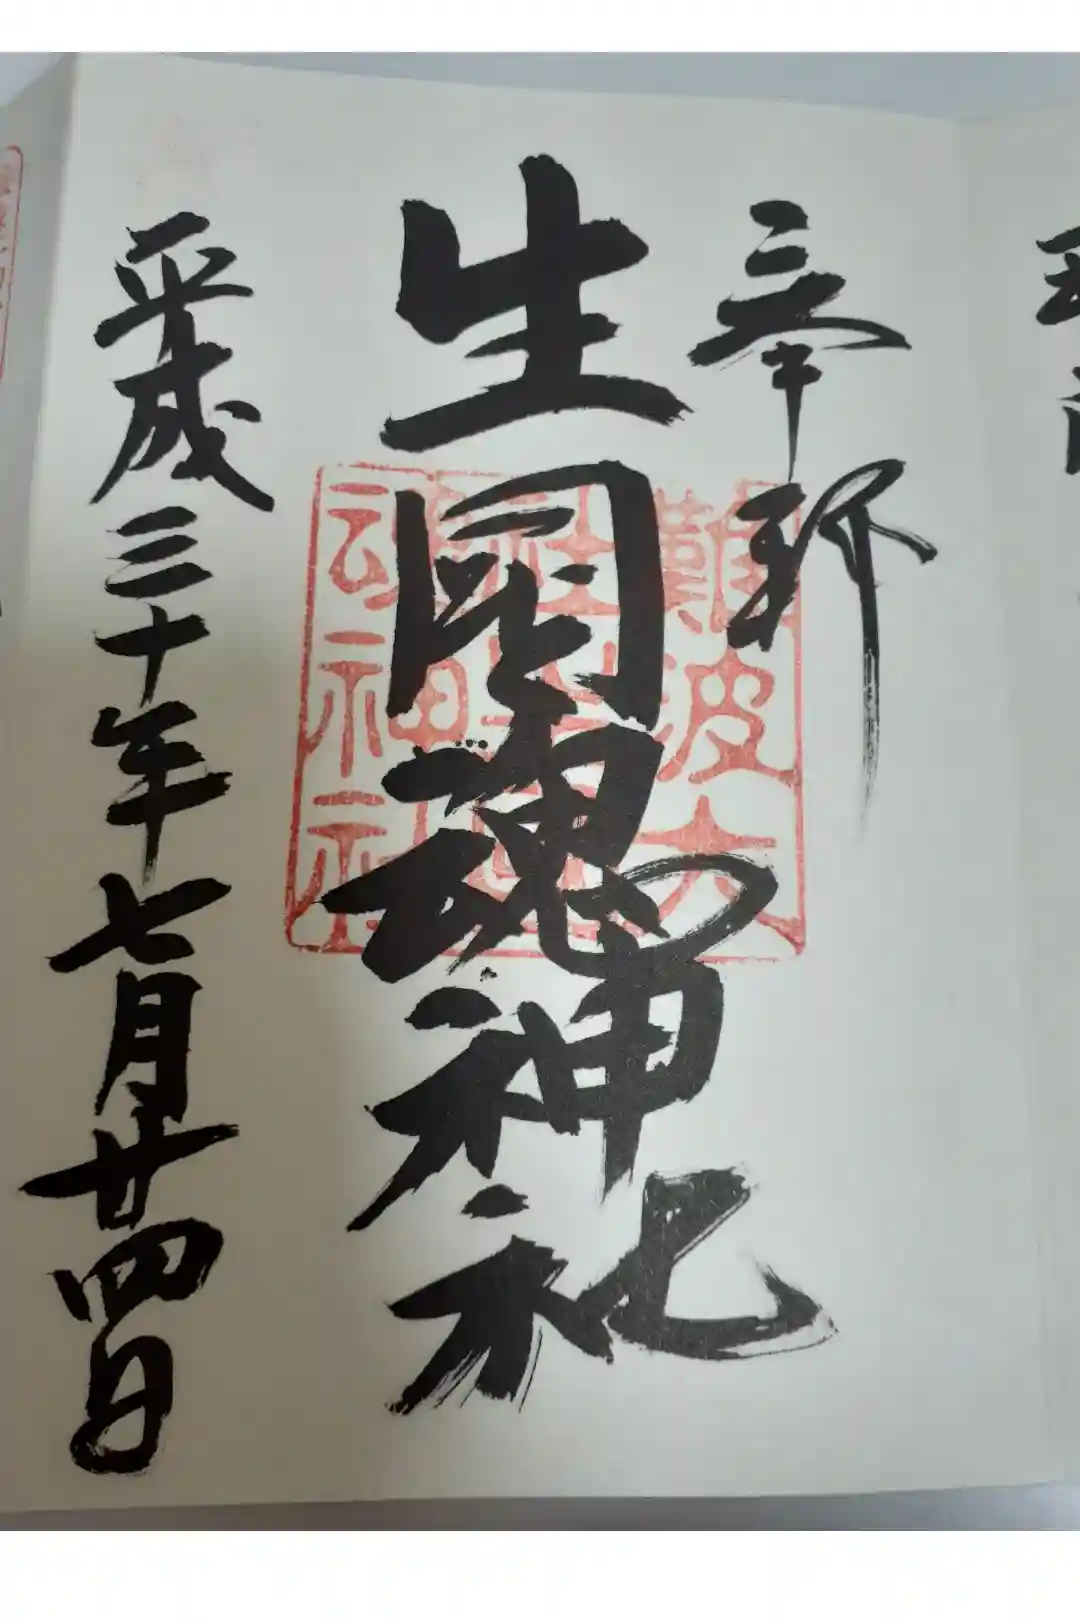 奉拝
生國魂神社
平成三十年七月廿四日
難波大
社生國
魂神社